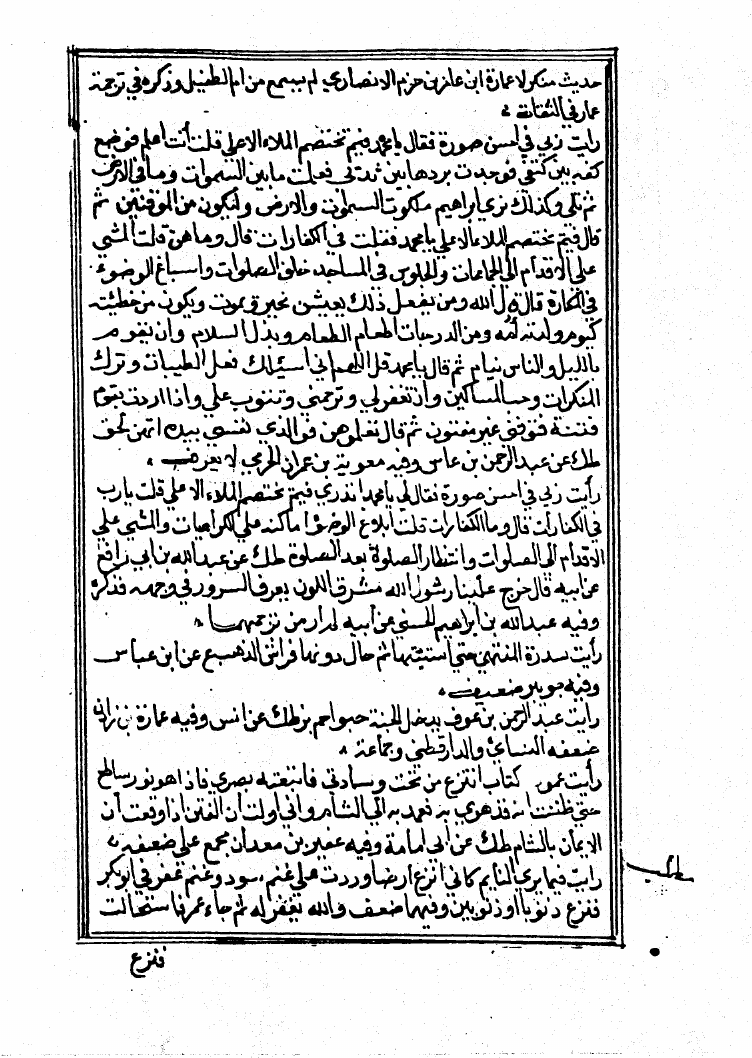 حديث منكر لا عمارة ابن عامر بن حزم الانصاري لم يسمع من ام الطفيل وذكره في ترجمة
عمار في الثقاة
رايت ربي في احسن صورة فقال يا محمد فيم تختصم الملاء الاعلى قلت أنت اعلم فوضع
كفه بين كتفي فوجدت بردها بين ثديي فعلمت ما بين السموات وما في الارض
ثم تلى وكذلك نري ابراهيم ملكوت السموات والارض وليكون من الموقنين ثم
قال فيم تختصم الملاء الاعلى يا محمد فقلت في الكفارات قال وما هن قلت المشي
على الاقدام الى الجماعات والجلوس في المساجد خلف الصلوات واسباغ الوضوء
في المكاره قال قال الله ومن يفعل ذلك يعيش بخير ويموت ويكون من خطيئته
كيوم ولدته أمه ومن الدرجات اطعام الطعام وبذل السلام وان يقوم
بالليل والناس نيام ثم قال يا محمد قل اللهم اني اسئلك فعل الطيبات وترك
المنكرات وحب المساكين وان تغفر لي وترحمني وتتوب علي واذا اردت بقوم
فتنة فتوفني غير مفتون ثم قال تعلموهن فوالذي نفسي بيده انهن لحق
طك عن عبد الرحمن بن عاس وفيه معوية بن عمران الجرمي لا يعرف
رأيت ربي في احسن صورة فقال لي يا محمد اتدري فيم تختصم الملاء الاعلى قلت يا رب
في الكفارات قال وما الكفارات قلت ابلاغ الوضوء اماكنه على الكراهيات والمشي على
الاقدام الى الصلوات وانتظار الصلوة بعد الصلوة طك عن عبد الله بن ابي رافع
عن ابيه قال خرج علينا رسول الله مشرق اللون يعرف السرور في وجهه فذكره
وفيه عبد الله بن ابراهيم الحسني عن أبيه لم أر من ترجمهما
رأيت سدرة المنتهى حتى استثبتها ثم حال دونها فراش الذهب ع عن ابن عباس
وفيه جويبر ضعيف
رايت عبد الرحمن بن عوف يدخل الجنة حبوا حم بز طك عن انس وفيه عمارة بن زاذان
ضعفه النسائي والدارقطني وجماعة
رأيت عمود كتاب انتزع من تحت وسادتي فاتبعته بصري فاذا هو نور ساطع
حتى ظننت انه قد هوى به فعمد به الى الشام واني اولت ان الفتن اذا وقعت أن
الايمان بالشام طك عن ابي امامة وفيه عفير بن معدان مجمع على ضعفه
رايت فيما يرى النايم كاني انزع ارضا وردت علي غنم سود وغنم عفر فاتى ابو بكر
فنزع ذنوبا او ذنوبين وفيهما ضعف والله يغفر له ثم جاء عمر فاستحالت
فنزع
مطلب